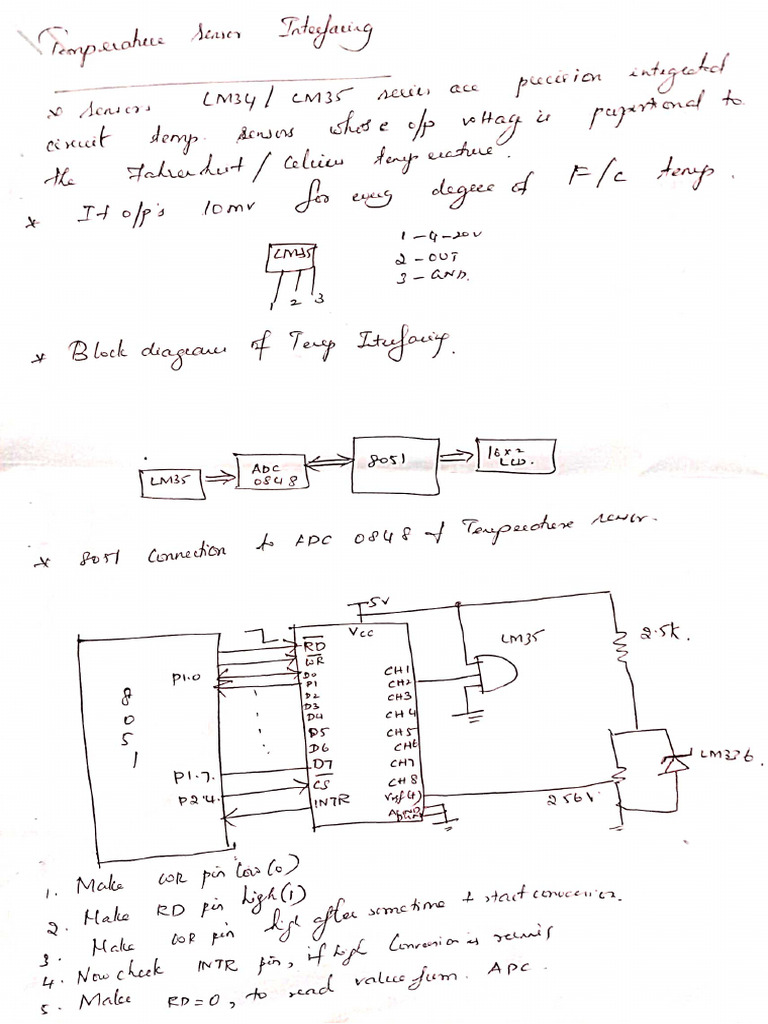 Temperature Sensor Interfacing
* Sensors LM34/LM35 series are precision integrated
circuit temp. sensors whose o/p voltage is propertional to
the Fahrenheit / Celsius temperature.
* It o/p's 10mv for every degree of F/C temp.
LM35
1 2 3
1 - 4-20V
2 - OUT
3 - GND.
* Block diagram of Temp Iterfacing.
LM35
ADC
0848
8051
16x2
LCD.
* 8051 Connection to ADC 0848 & Temperature sensor.
8051
P1.0
P1.7.
P2.4.
5v
Vcc
RD
WR
D0
D1
D2
D3
D4
D5
D6
D7
CS
INTR
CH1
CH2
CH3
CH4
CH5
CH6
CH7
CH8
Vref(+)
AGND
DGND
LM35
2.5k.
LM336.
2.56V.
1. Make WR pin low(0)
2. Make RD pin high(1)
3. Make WR pin high after sometime & start conversion.
4. Now check INTR pin, if high Conversion is
5. Make RD=0, to read value from. ADC.